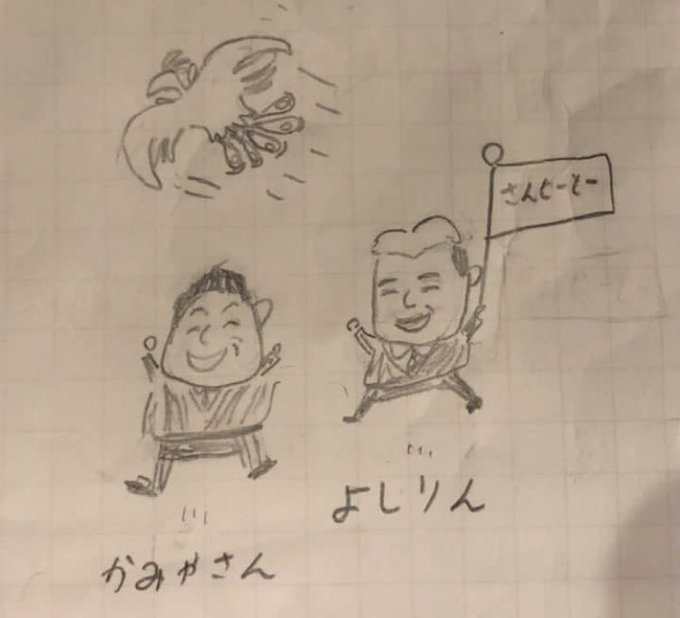 さんせーとー
よしりん
かみやさん